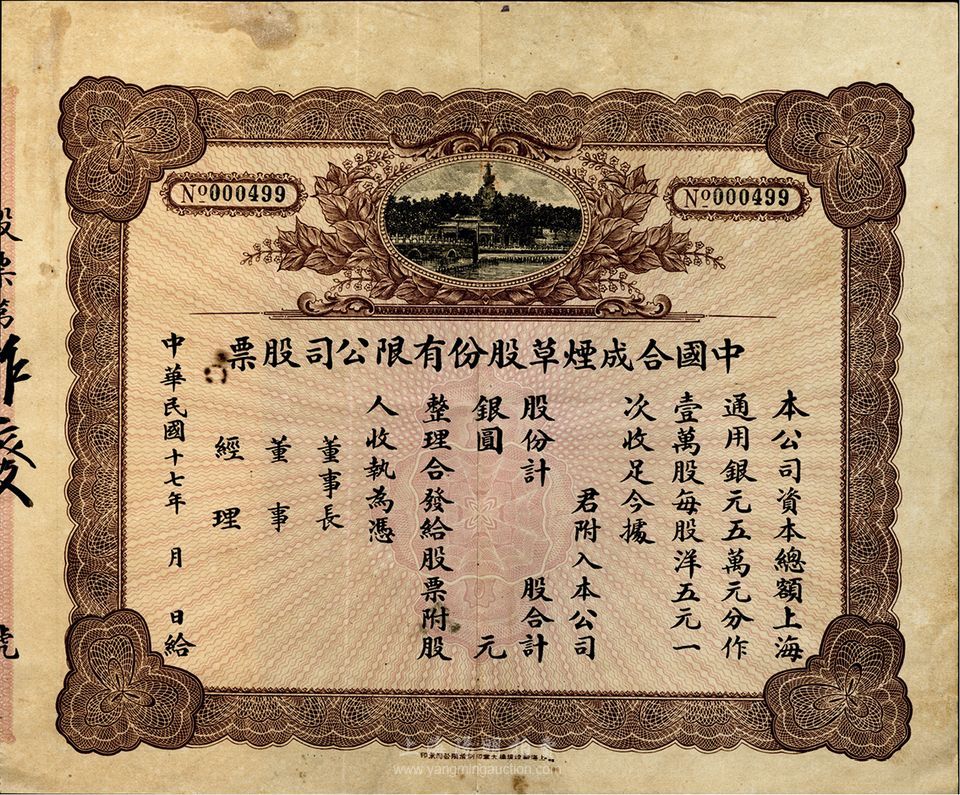 No000499
No000499
中國合成煙草股份有限公司股票
本公司資本總額上海
通用銀元五萬元分作
壹萬股每股洋五元一
次收足今據
君附入本公司
股份計 股合計
銀圓 元
整理合發給股票附股
人收執為憑
董事長
董事
經理
中華民國十七年 月 日給
股票第
作廢
號
www.yangmingauction.com